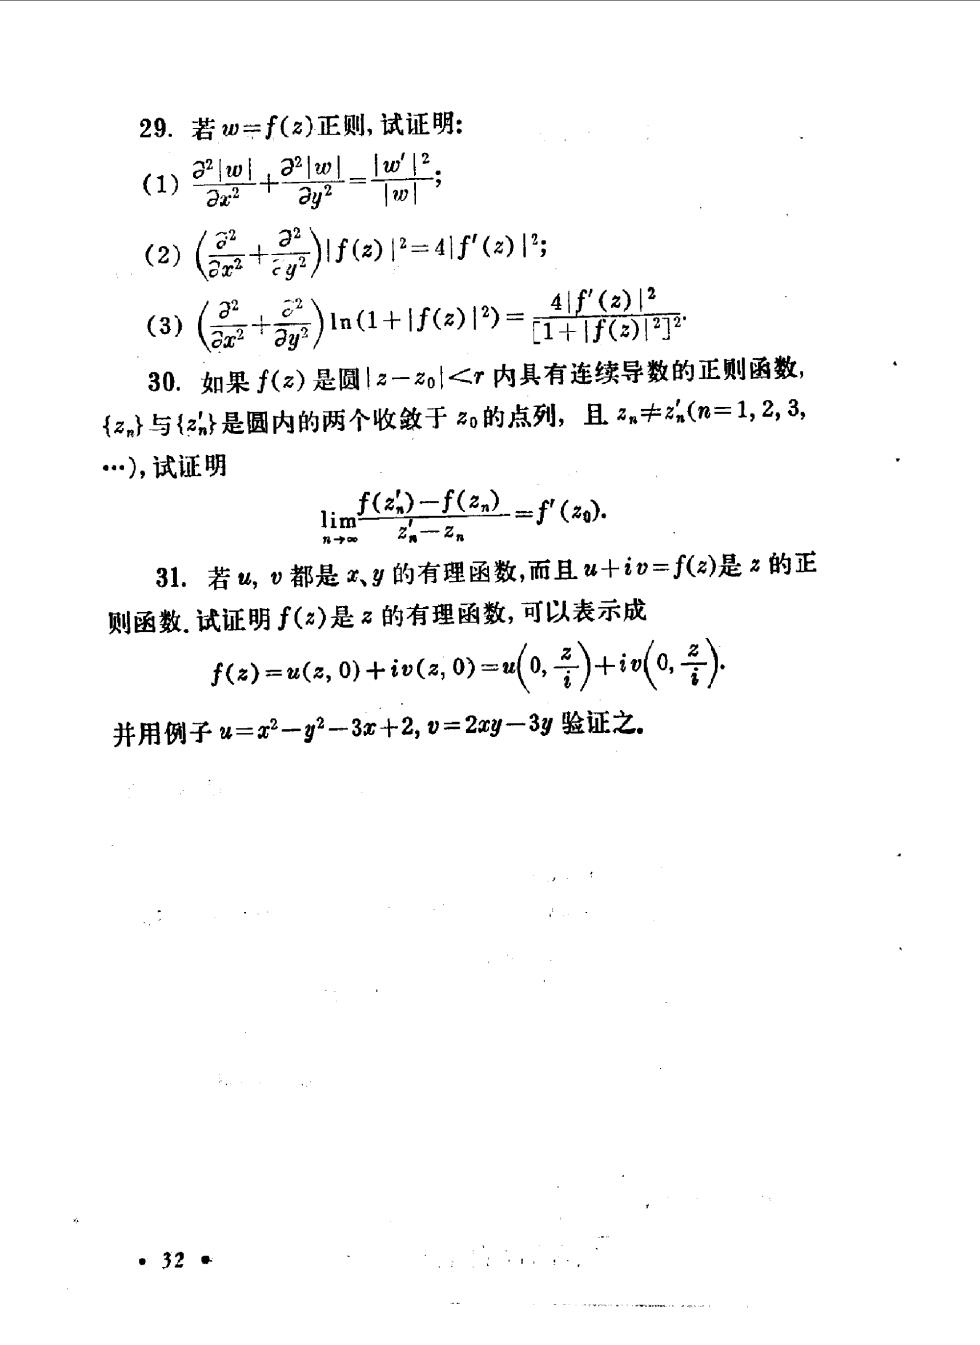 29. 若 w=f(z)正则, 试证明:
(1) ∂²|w|/∂x² + ∂²|w|/∂y² = |w′|²/|w|;
(2) (∂²/∂x² + ∂²/∂y²)|f(z)|²=4|f′(z)|²;
(3) (∂²/∂x² + ∂²/∂y²) ln(1+|f(z)|²) = 4|f′(z)|²/[1+|f(z)|²]².
30. 如果 f(z) 是圆|z−z₀|<r 内具有连续导数的正则函数,
{zₙ}与{z′ₙ}是圆内的两个收敛于 z₀的点列, 且 zₙ≠z′ₙ(n=1,2,3,
…), 试证明
lim_{n→∞} (f(z′ₙ)−f(zₙ))/(z′ₙ−zₙ) = f′(z₀).
31. 若 u, v 都是 x、y 的有理函数,而且 u+iv=f(z)是 z 的正
则函数. 试证明 f(z)是 z 的有理函数, 可以表示成
f(z)=u(z, 0)+iv(z, 0)=u(0, z/i)+iv(0, z/i).
并用例子 u=x²−y²−3x+2, v=2xy−3y 验证之.
• 32 •